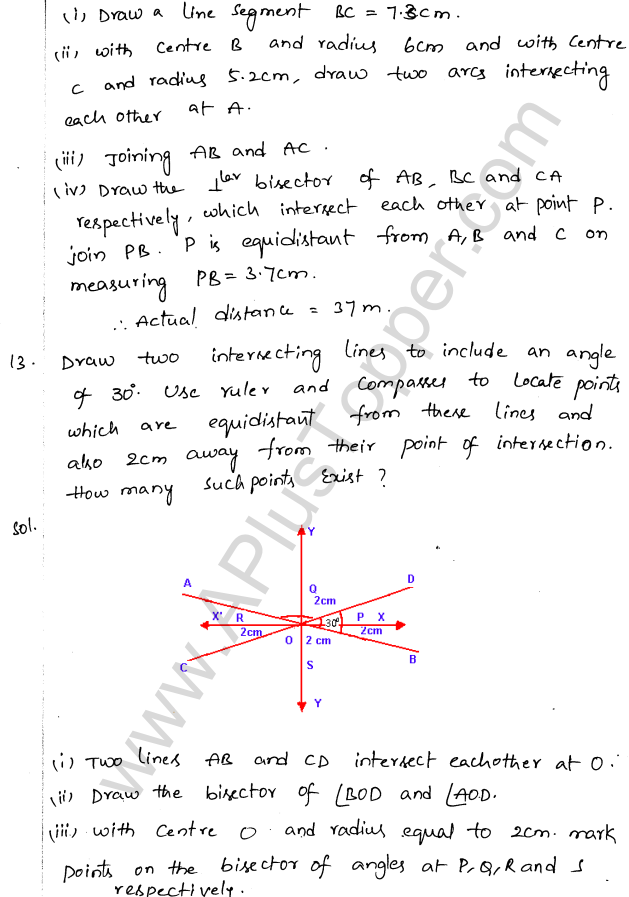 (i) Draw a line segment BC = 7.3cm.
(ii) with centre B and radius 6cm and with centre
C and radius 5.2cm, draw two arcs intersecting
each other at A.
(iii) Joining AB and AC.
(iv) Draw the ⊥ler bisector of AB, BC and CA
respectively, which intersect each other at point P.
join PB. P is equidistant from A, B and C on
measuring PB = 3.7cm.
∴ Actual distance = 37 m.
13. Draw two intersecting lines to include an angle
of 30°. Use ruler and compasses to locate points
which are equidistant from these lines and
also 2cm away from their point of intersection.
How many such points exist ?
Sol.
Y
A
Q
D
2cm
X' R
30°
P X
2cm
O 2 cm
2cm
C
S
B
Y
(i) Two lines AB and CD intersect eachother at O.
(ii) Draw the bisector of ∠BOD and ∠AOD.
(iii) with centre O and radius equal to 2cm. mark
points on the bisector of angles at P, Q, R and S
respectively.
www.APlusTopper.com